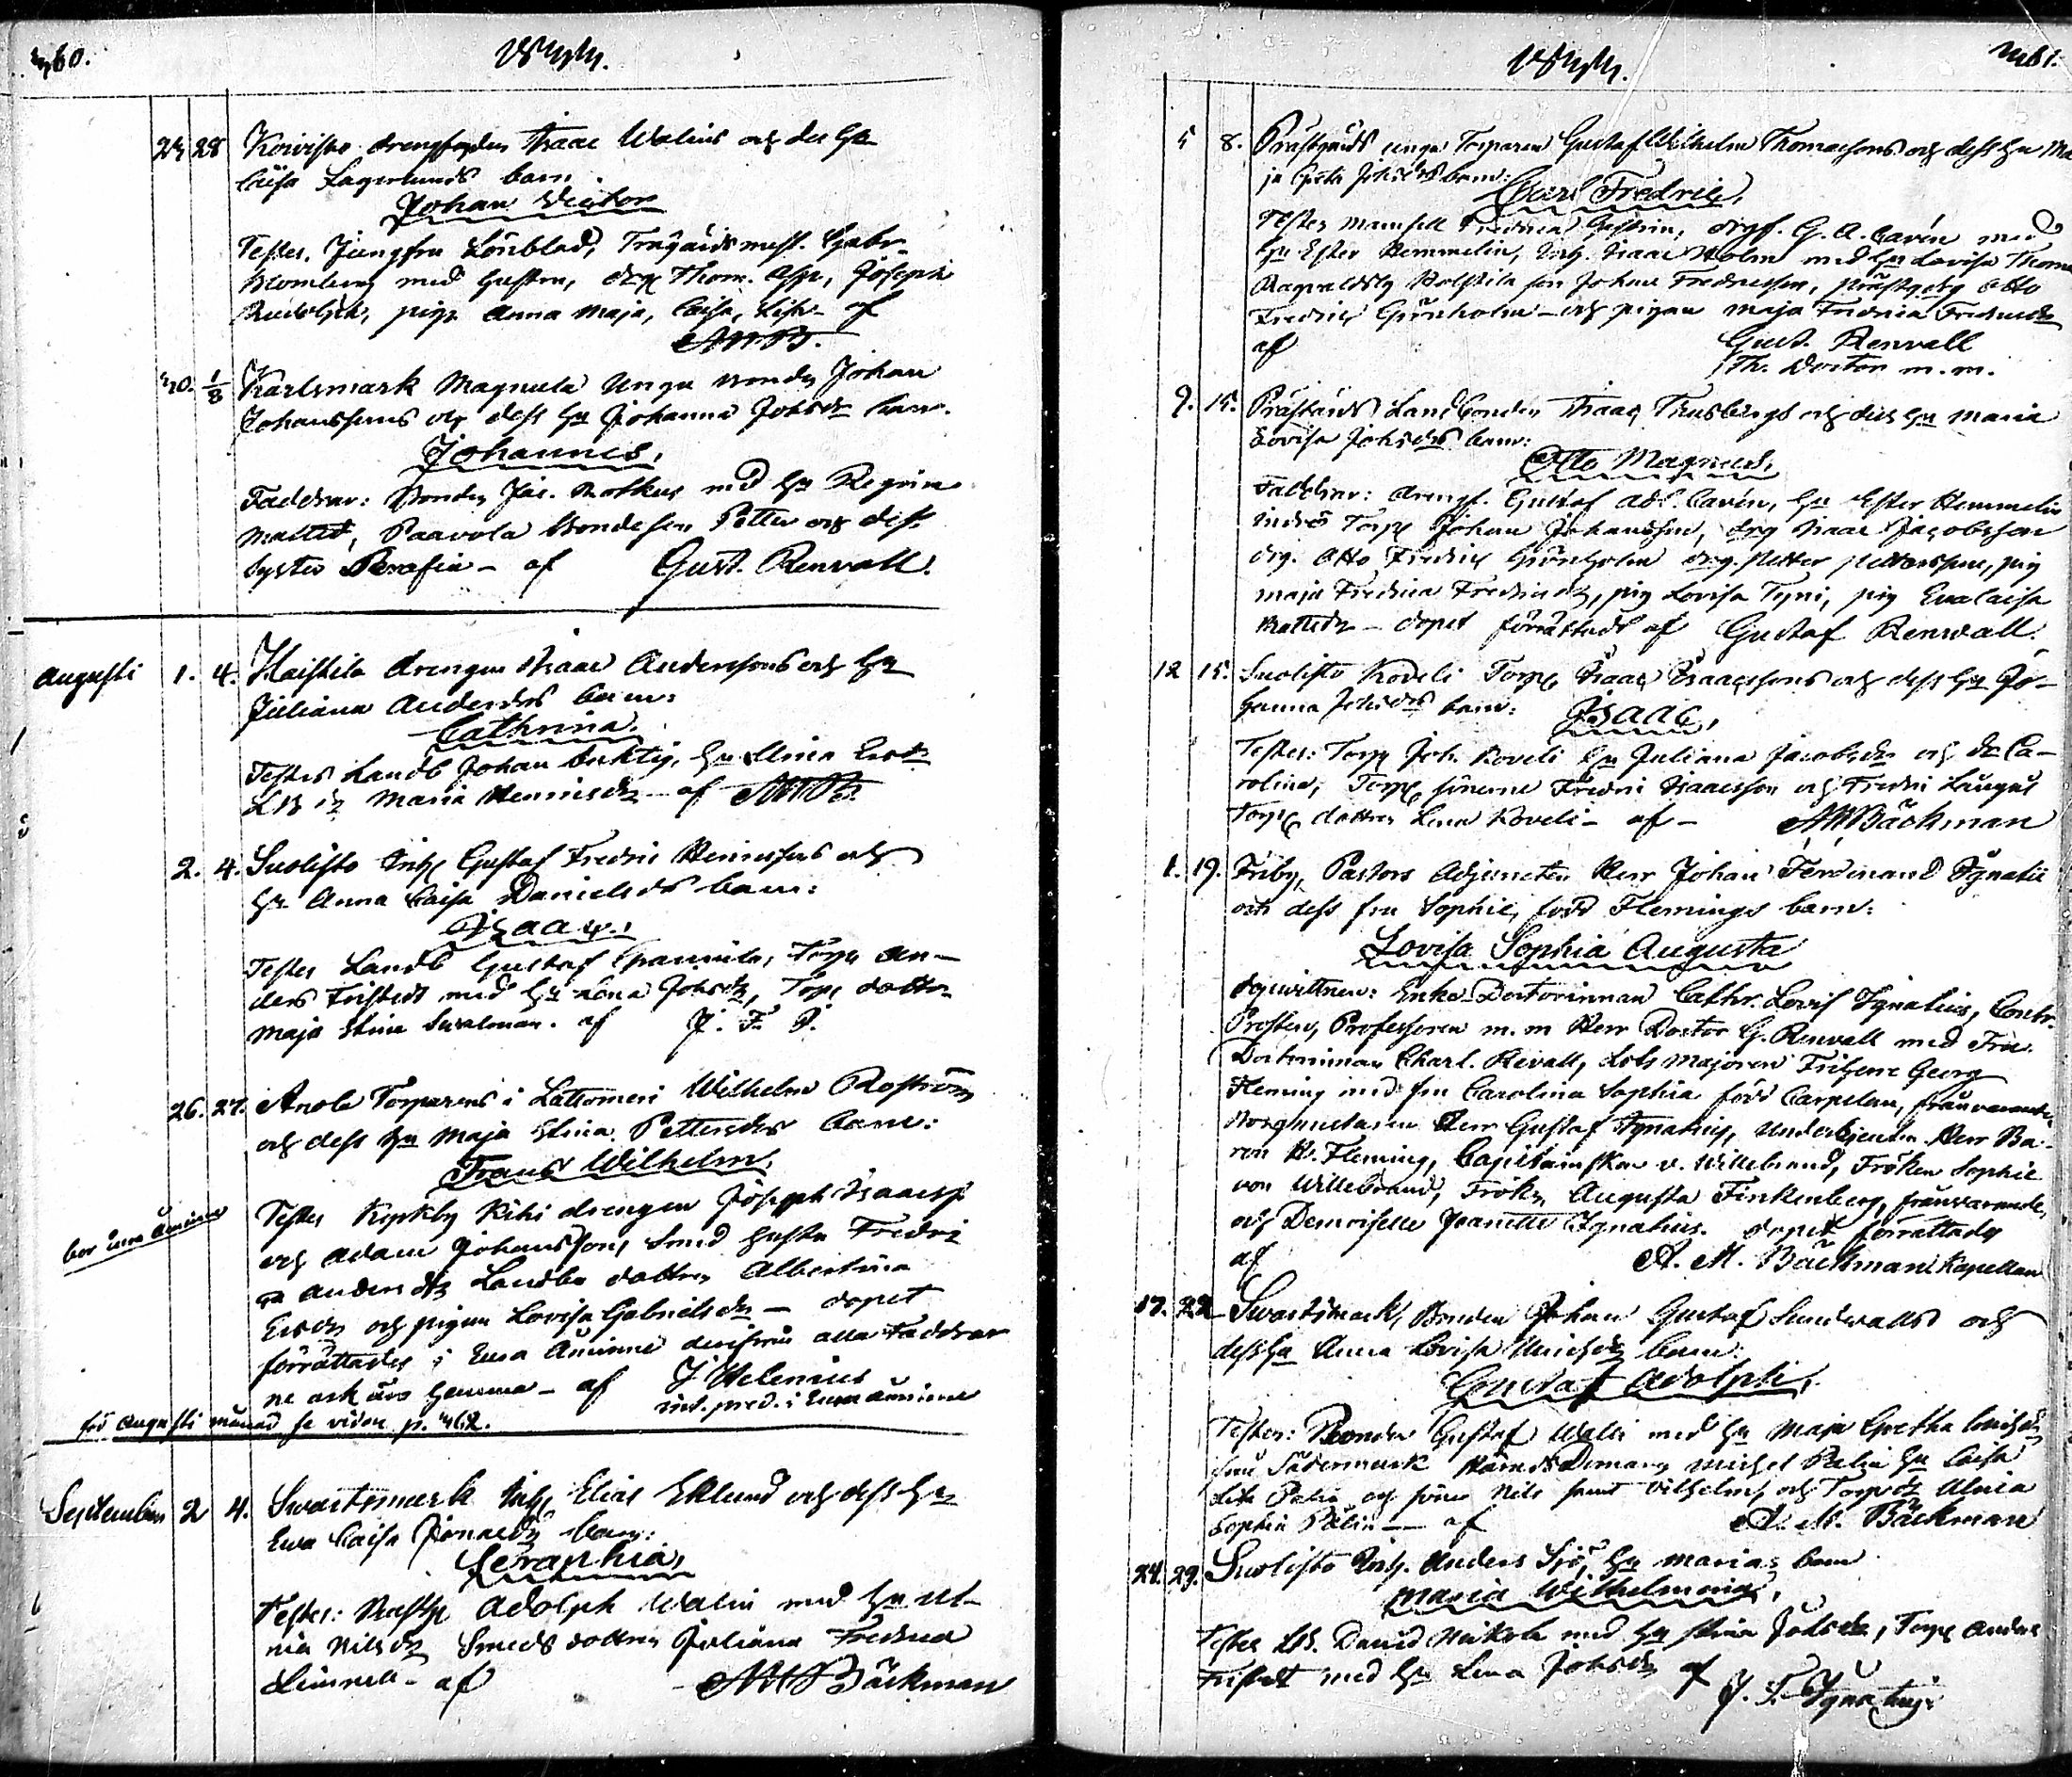 360.
1844.
24 28 Koivisto drengfogden Isaac Walins och des Hu
Caisa Lagerlunds barn.
Johan Victor
Testes, Jungfru Lönblad, Trägårdsmest. Gabr.
Blomberg med hustru, Thom. Joseph
Rudolph, pig. Anna Maja, Caisa, Lisa af
AMB.
30. 1/8 Karlsmark Magnula Unga bonden Johan
Johanssons och dess Hu Johanna Johsdr barn.
Johannes.
Faddrar: Bonden Jac. med Hu Regina
Mattsd, Paavola Bondeson Petter och dess
syster Serafia - af Gust. Renvall.
Augusti 1. 4. Haistila drengen Isaac Anderssons och Hu
Juliana Andersdrs barn:
Cathrina.
Testes Landb Johan Hu Ulrica
Maria Henricsdr - af AMB.
2. 4. Suolisto Inh Gustaf Fredric Henricssons och
Hu Anna Caisa Danielsdrs barn:
Isaac.
Testes Landb Gustaf Torp An-
ders Fristedt med Hu Lena Johsdr, Torp dottr
Maja Stina af J. F. I.
26. 27. Anola Torparens i Lattomeri Wilhelm Roström
och dess Hu Maja Stina Pettersdrs barn:
Frans Wilhelm.
bor Eura Åminne
Testes Kyrkby Kihi drengen Joseph Isaacss
och Adam Johansson, Smed hustu Fredri
ca Andersdr Landbo dottren Albertina
Ersdr och pigan Lovisa Gabrielsdr - dopet
förrättades i Eura Åminne derifrån alla Faddrar
ne ock äro hemma - af J Helenius
pred. i Eura åminne
för Augusti månad se vidare p. 462.
September 2 4. Swartsmark Inh Elias Eklund och dess Hu
Ewa Caisa barn:
Seraphia,
Testes: Adolph Walin med Hu Ul-
rica Nilsdr Smeds dottren Juliana Fredrica
af AMBäckman
1844.
461.
5 8. Prästgårds unga Torparen Gustaf Wilhelm Thomassons och dess Hu Ma
ja Greta Johsdrs barn:
Carl Fredric,
Testes Mamsell Fredrica drgf. G. A. Cavén med
Hu Ester Hemmelin, Inh. Isaac Holm med Hu Lovisa Thom
Ragvaldsby Holstila son Johan Fredricsson, prästgdg Otto
Fredric Grönholm - och pigan Maja Fredrica Fredricsdr
af Gust. Renvall
Th. Doctor m. m.
9. 15. Prästgårds Landbonden Isaac Thusbergs och dess Hu Maria
Lovisa Johsdrs barn:
Otto Magnus.
Faddrar: drengf. Gustaf Adl. Cavén, Hu Ester Hemmelin
Torp Johan Johansson, drg Isaac Jacobsson
drg. Otto Fredric Grönholm drg. Petter Petterssson, pig
Maja Fredrica Fredricsdr, pig Lovisa Tyni, pig Eva Caisa
Mattsdr - dopet förrättadt af Gustaf Renwall.
12 15. Suolisto Koveli Torp Isaac Isaacssons och dess Hu Jo-
hanna Johsdrs barn: Isaac,
Testes: Torp Joh. Koveli Hu Juliana Jacobsdr och dr Ca-
rolina, Torp sönerne Fredric Isaacsson och Fredric
Torp dottren Lena Koveli - af - AMBäckman
1. 19. Friby, Pastors Adjuncten Herr Johan Ferdinand Ignatii
och dess fru Sophie, född Flemings barn:
Lovisa Sophia Augusta
dopwittnen: Enke-Doctorinnan Cathr. Lovis Ignatius, Contr.
Prosten, Professoren m. m Herr Doctor G. Renvall med Fru
Doctorinnan Charl. Revall, Lots Majoren Friherre Georg
Fleming med fru Carolina Sophia född Carpelan, frånvarande
Borgmestaren Herr Gustaf Ignatius, Herr Ba-
ron H. Fleming, Capitainskan v. Willebrand, Fröken Sophie
von Willebrand, Frökn Augusta Finkenberg, frånvarande,
och Demoiselle Jeanette Ignatius. dopet förrättades
af A. M. Bäckman Kapellan
17. 22 Swartsmark, Bonden Johan Gustaf Sundvalls och
dess Hu Anna Lovisa barn:
Gustaf Adolph.
Testes: Bonden Gustaf Walli med Hu Maja Gretha
Södermark Michel Palin Hu Caisa
Lisa och söner Nils samt Vilhelm, och Torp dr Ulrica
Sophia Palin - af A. M. Bäckman
24. 29. Suolisto Inh. Anders Sjö, Hu Marias barn
Maria Wilhelmina,
Testes Lb. David Heikola med Hu Stina Johsdr, Torp Anders
Fristedt med Hu Lena Johsdr af J. F. Ignatius